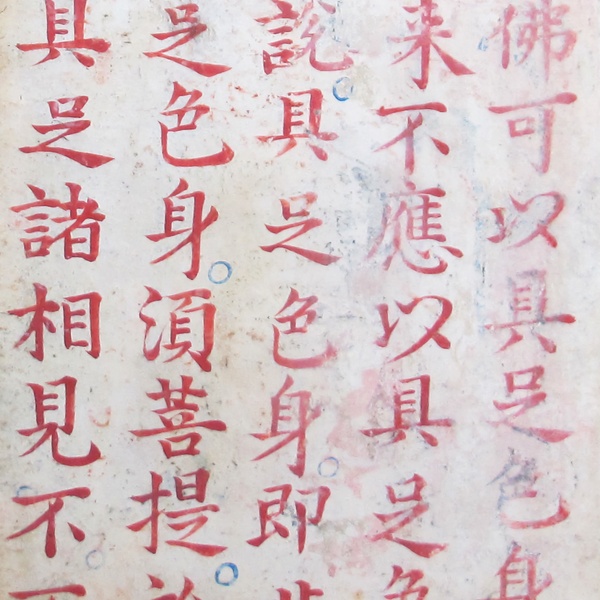 佛可以具足色身
来不應以具足色
說。具足色身。即
足色身。湏菩提。
具足諸相見不